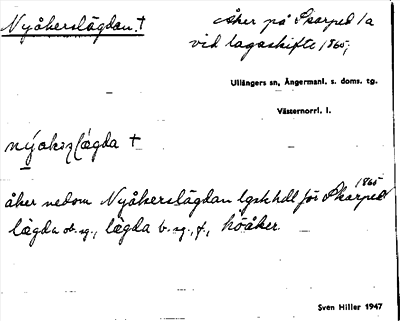 Nyåkerslägdan. †
åker på Skarped 1a
vid lagaskifte 1865;
Ullångers sn, Ångermanl. s. doms. tg.
Västernorrl. l.
lǽgda †
åker nedom Nyåkerslägdan lgskhdl för Skarped 1865
lägda ob. sg., lägda b. sg., f., höåker.
Sven Hiller 1947